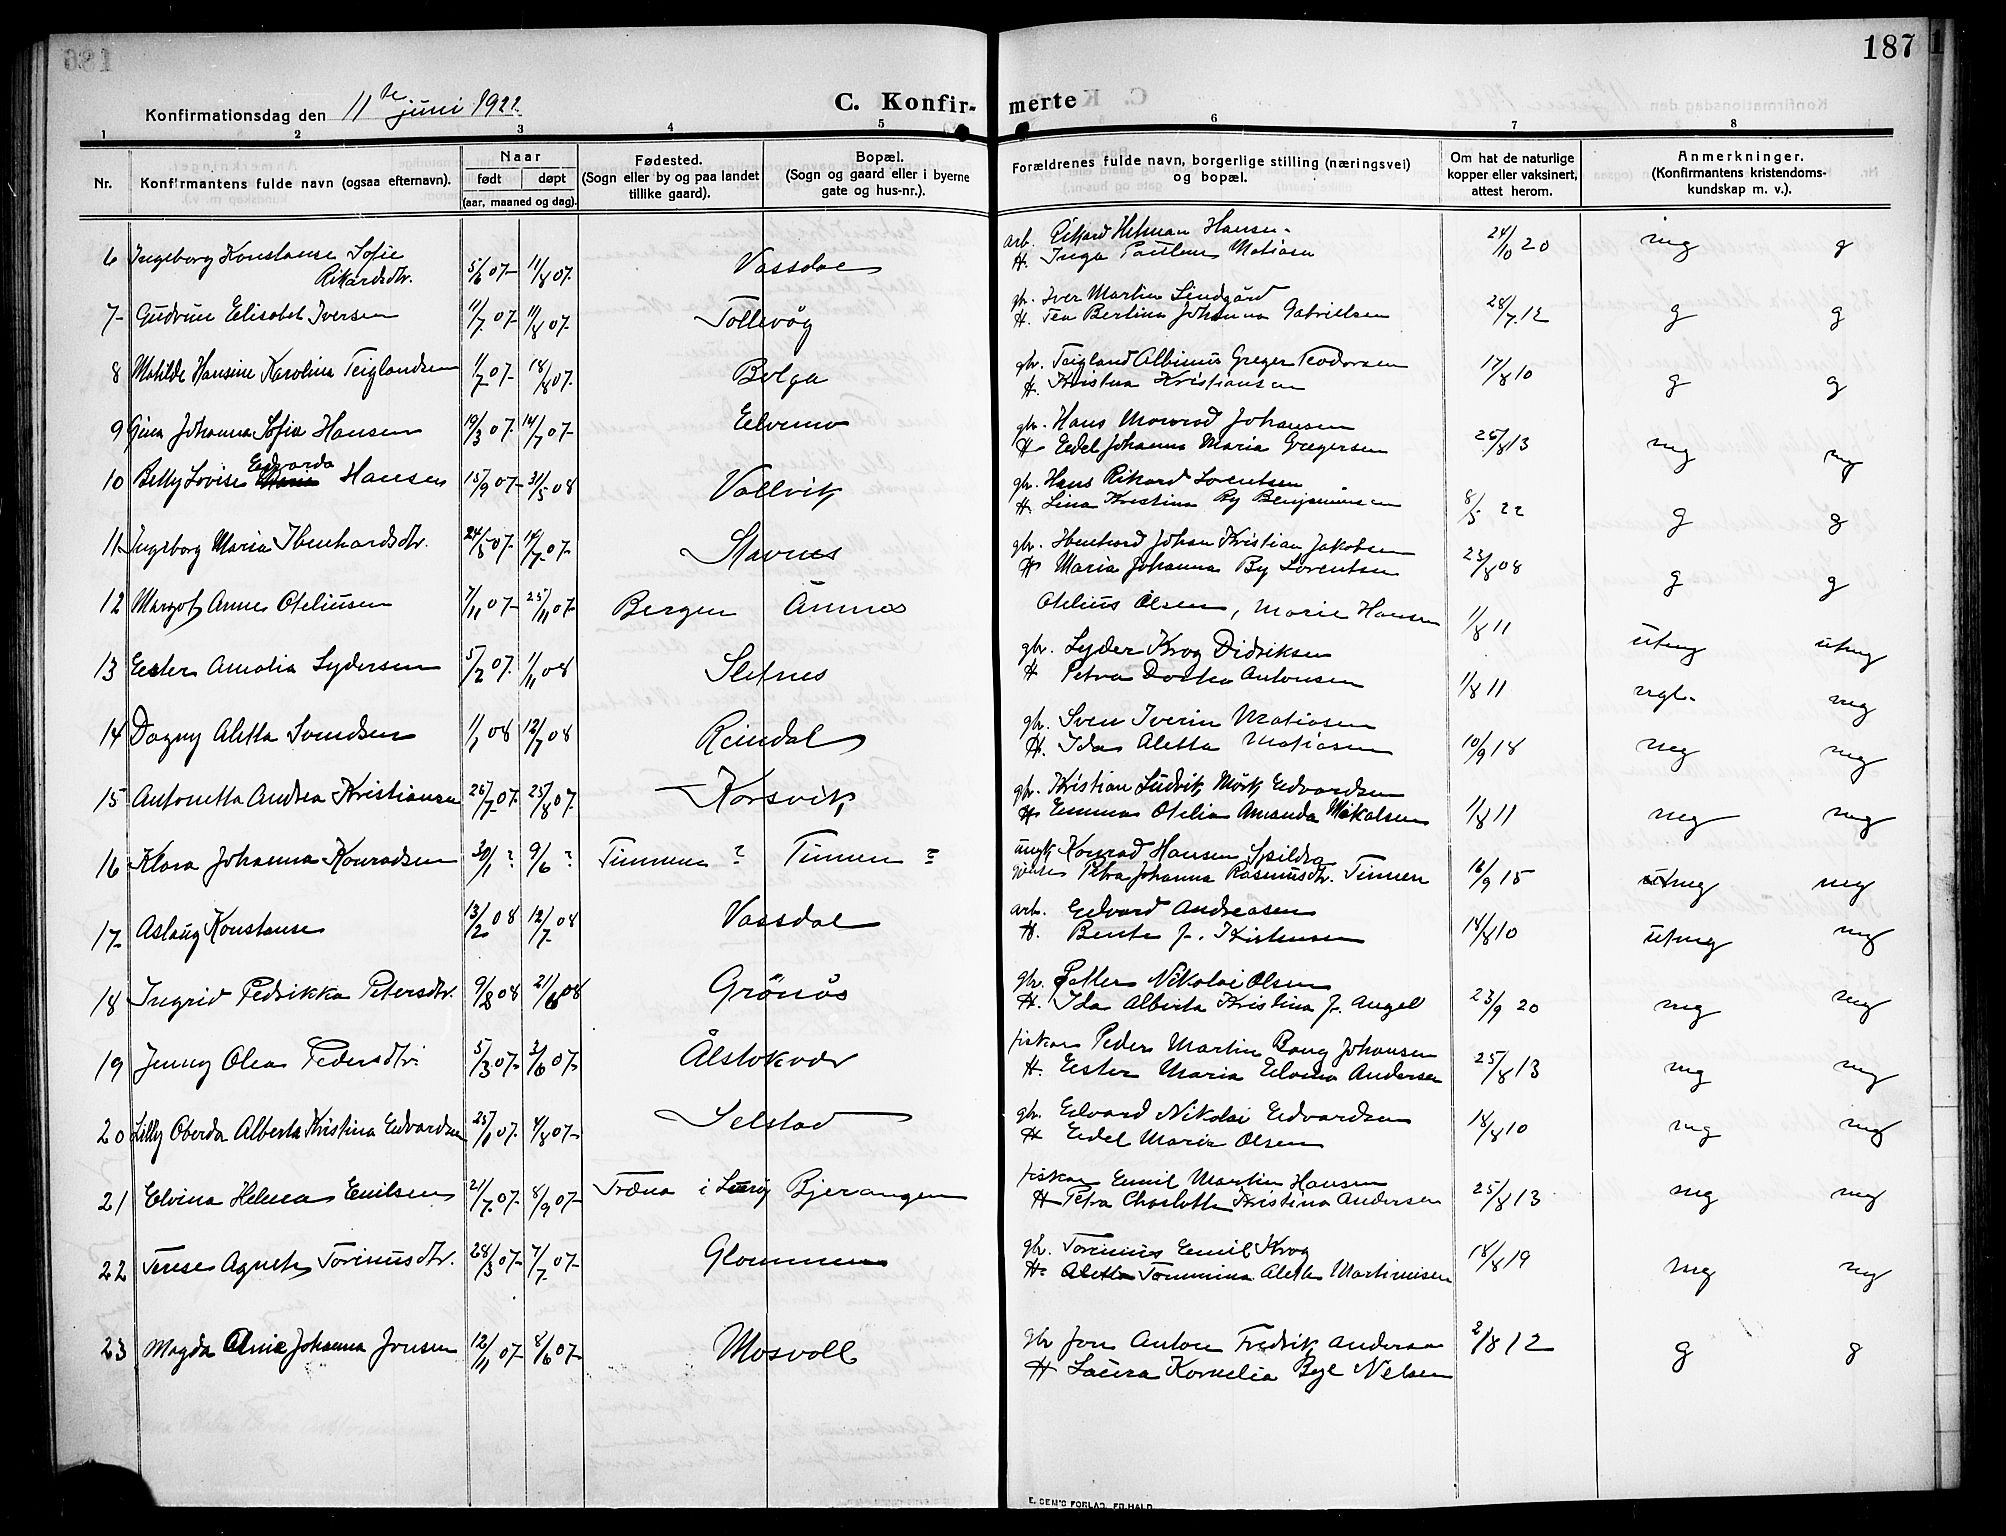 187
Konfirmationsdag den 11te juni 1922.
C. Konfir- merte
1 2 3 4 5 6 7 8
Nr. Konfirmantens fulde navn (ogsaa efternavn). Naar født døpt (aar, maaned og dag). Fødested. (Sogn eller by og paa landet tillike gaard). Bopæl. (Sogn og gaard eller i byerne gate og hus-nr.). Forældrenes fulde navn, borgerlige stilling (næringsvei) og bopæl. Om hat de naturlige kopper eller vaksinert, attest herom. Anmerkninger. (Konfirmantens kristendoms- kundskap m. v.).
6 Ingeborg Konstanse Sofie Rikardsdtr. 5/6 07- 11/8 07. Vassdal arb. Rikard Hetman Hansen-
H. Inga Pauline Matiasen 24/10 20 mg g
7- Gudrun Elisabet Iversen 11/7 07- 11/8 07- Tollevåg gbr. Iver Martin Lindgård
H. Tea Bertina Johanna Gabrielsen 28/7.12 g g
8 Matilde Hansine Karolina Teiglandsen 1/7 07- 18/8 07. Bolga gbr. Teigland Albinus Greger Teodorsen
H. Kristina Kristiansen 17/8 10 g g
9 Gina Johanna Sofia Hansen 19/3 07. 14/7 07- Elvemo gbr. Hans Monrad Johansen
H Edel Johanna Maria Gregersen 26/8 13 mg mg
10 Betty Lovise Edvarda Hansen 15/9 07- 31/5 08 Vallvik gbr. Hans Rikard Lorentsen
H. Lina Kristina By Benjaminsen 8/5 22 g g
11 Ingeborg Maria Ibenhardsdtr. 24/5 07- 14/7 07- Stavnes gbr. Ibenhard Johan Kristian Jakobsen
H Maria Johanna By Lorentsen 23/8 08 g g
12 Margot Annes Oteliusen 7/11 07- 25/11 07- Bergen Ånnes Otelius Olsen, Marie Hansen 1/8 11 utmg utmg
13 Ester Amalia Lydersen 5/2 07. 1/11 08 Sletnes gbr. Lyder Krog Didriksen
H Petra Dortea Antonsen 1/8 11 ngl. mg
14 Dagny Aletta Svendsen 1/1 08 12/7 08 Reindal gbr. Sven Iverin Matiasen
H. Ida Aletta Matiasen 10/9 18 mg mg
15 Antonetta Andrea Kristiansen 26/7 07. 25/8 07. Korsvik gbr. Kristian Ludvik Mørk Edvardsen
H. Emma Otelia Amanda Mikalsen 1/8 11 mg mg
16 Klara Johanna Konradsen 30/1 ? 9/6 ? Timmen ? Tinnen ? ungk. Konrad Hansen Spildra
Petra Johanna Rasmusdtr. Tinnen 16/9 15 utmg mg
17- Aslaug Konstanse 13/2 08 12/7 08 Vassdal arb. Edvard Andreasen
H. Bente f. Kristensen 14/8 10 utmg mg
18 Ingrid Fedrikka Petersdtr. 9/2 08 21/6 08 Grönås gbr. Petter Nikolai Olsen
H. Ida Alberta Kristina f. Angel 23/9 20 mg mg
19 Jenny Olea Pedersdtr. 5/3 07- 2/6 07- Ålstokvær fisker Peder Martin Bang Johansen
H. Ester Maria Edvina Andersen 25/8 13 mg mg
20 Lilly Oberda Alberta Kristina Edvardsen 25/1 07. 4/8 07- Selstad gbr. Edvard Nikolai Edvardsen
H Edel Maria Olsen 18/8 10 mg mg
21 Elvina Helena Emilsen 21/7 07- 8/9 07- Træna i Lurøy Bjerangen fisker Emil Martin Hansen
H Petra Charlotte Kristina Andersen 25/8 13 mg mg
22 Terese Agnete Torinusdtr. 28/3 07- 7/7 07- Glommen gbr. Torinus Emil Krog
H. Tommina Aletta Martinusen 18/8 19 mg mg
23 Magda Aline Johanna Jonsen 12/11 07- 8/6 07- Mosvoll gbr Jon Anton Fredrik Andersen
H Laura Kornelia Bye Nelsen 2/8 12 g g
E. SEM'S FORLAG, FR.HALD